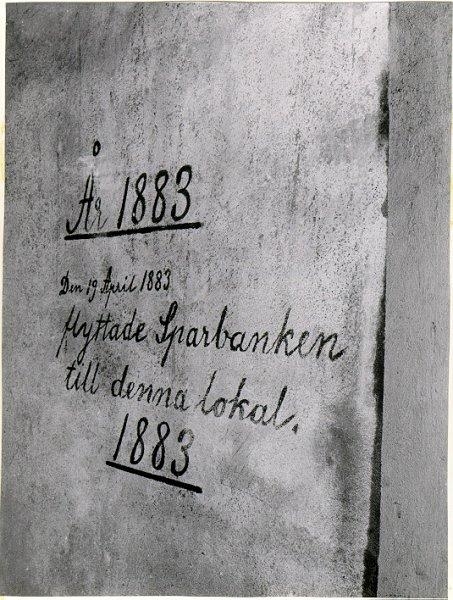 År 1883
Den 19 April 1883
flyttade Sparbanken
till denna lokal.
1883